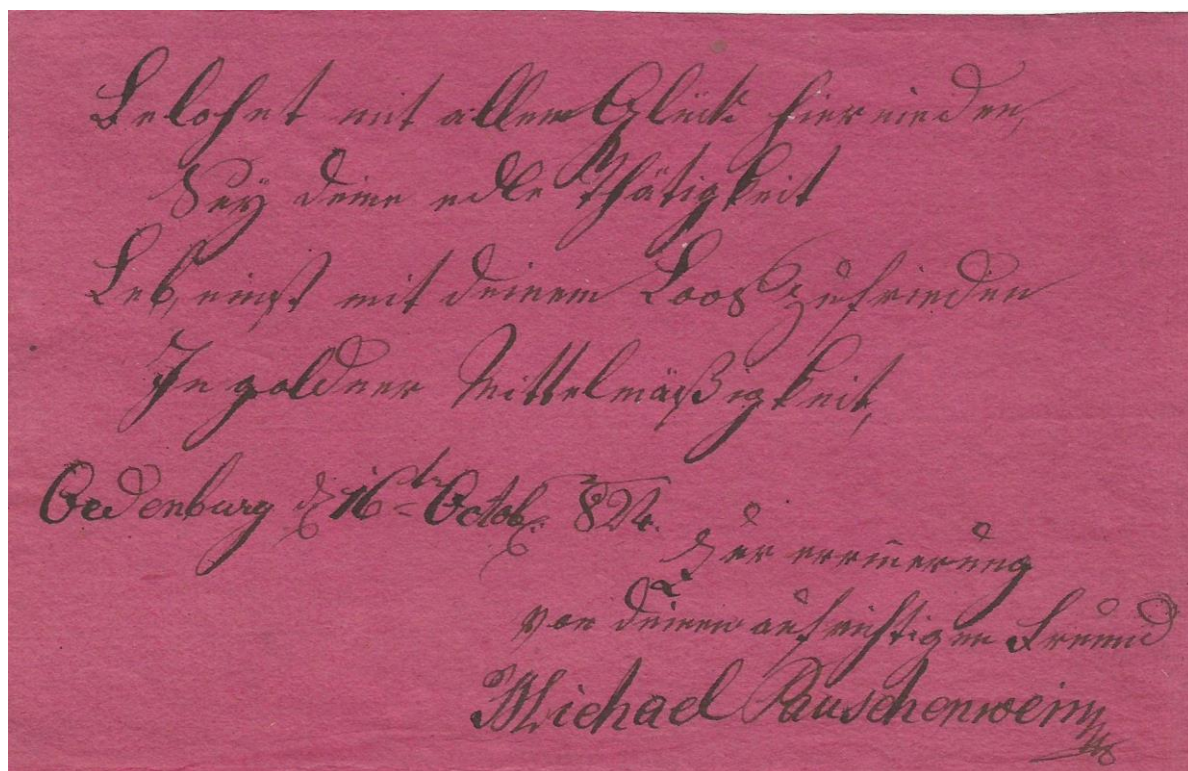 Belohnt mit allem Glück hiernieden,
Sey deine edle Thätigkeit
Leb einst mit deinem Loos zufrieden
In goldner Mittelmäßigkeit,
Oedenburg d 16t Octob. 824.
Zur errinerung
von deinen aufrichtigen Freund
Michael Pauschenwein